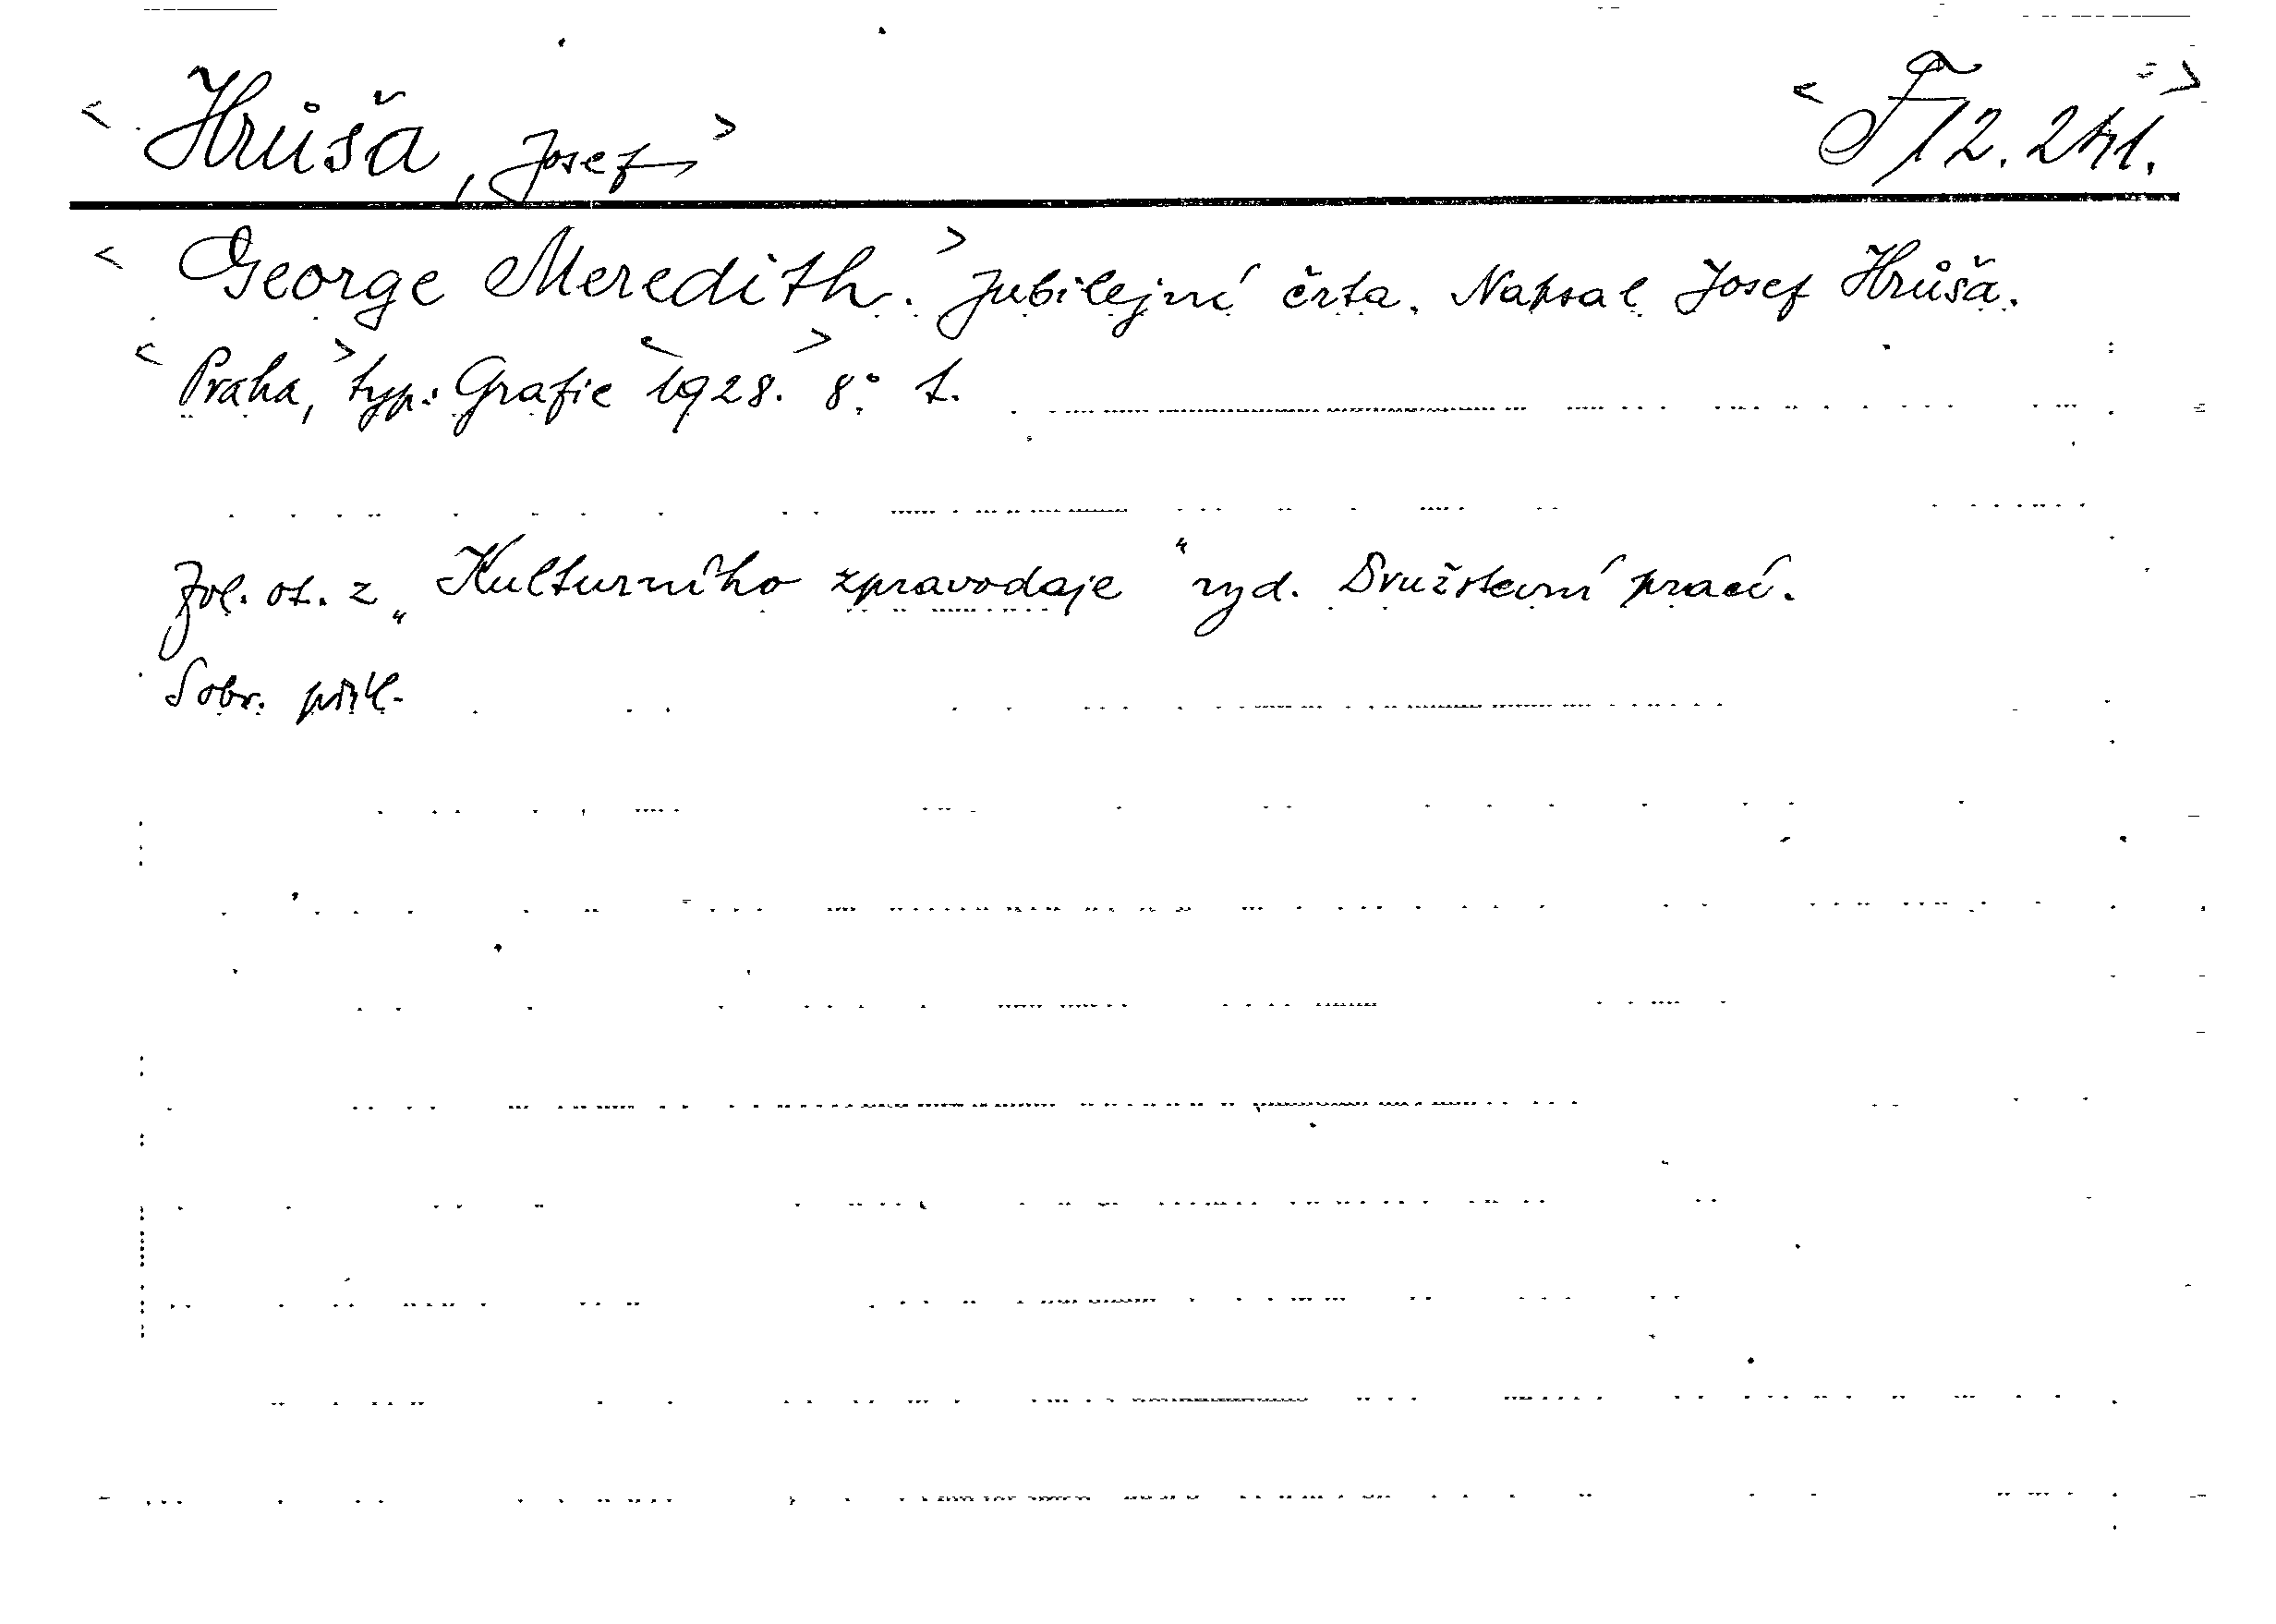 < Hrůša, Josef > < F 12.241. >
< George Meredith. > Jubilejní črta. Napsal Josef Hrůša.
< Praha, > typ: Grafie < 1928. > 8° 1.
Zvl. ot. z „Kulturního zpravodaje“ vyd. Družstevní prací.
S obr. příl.